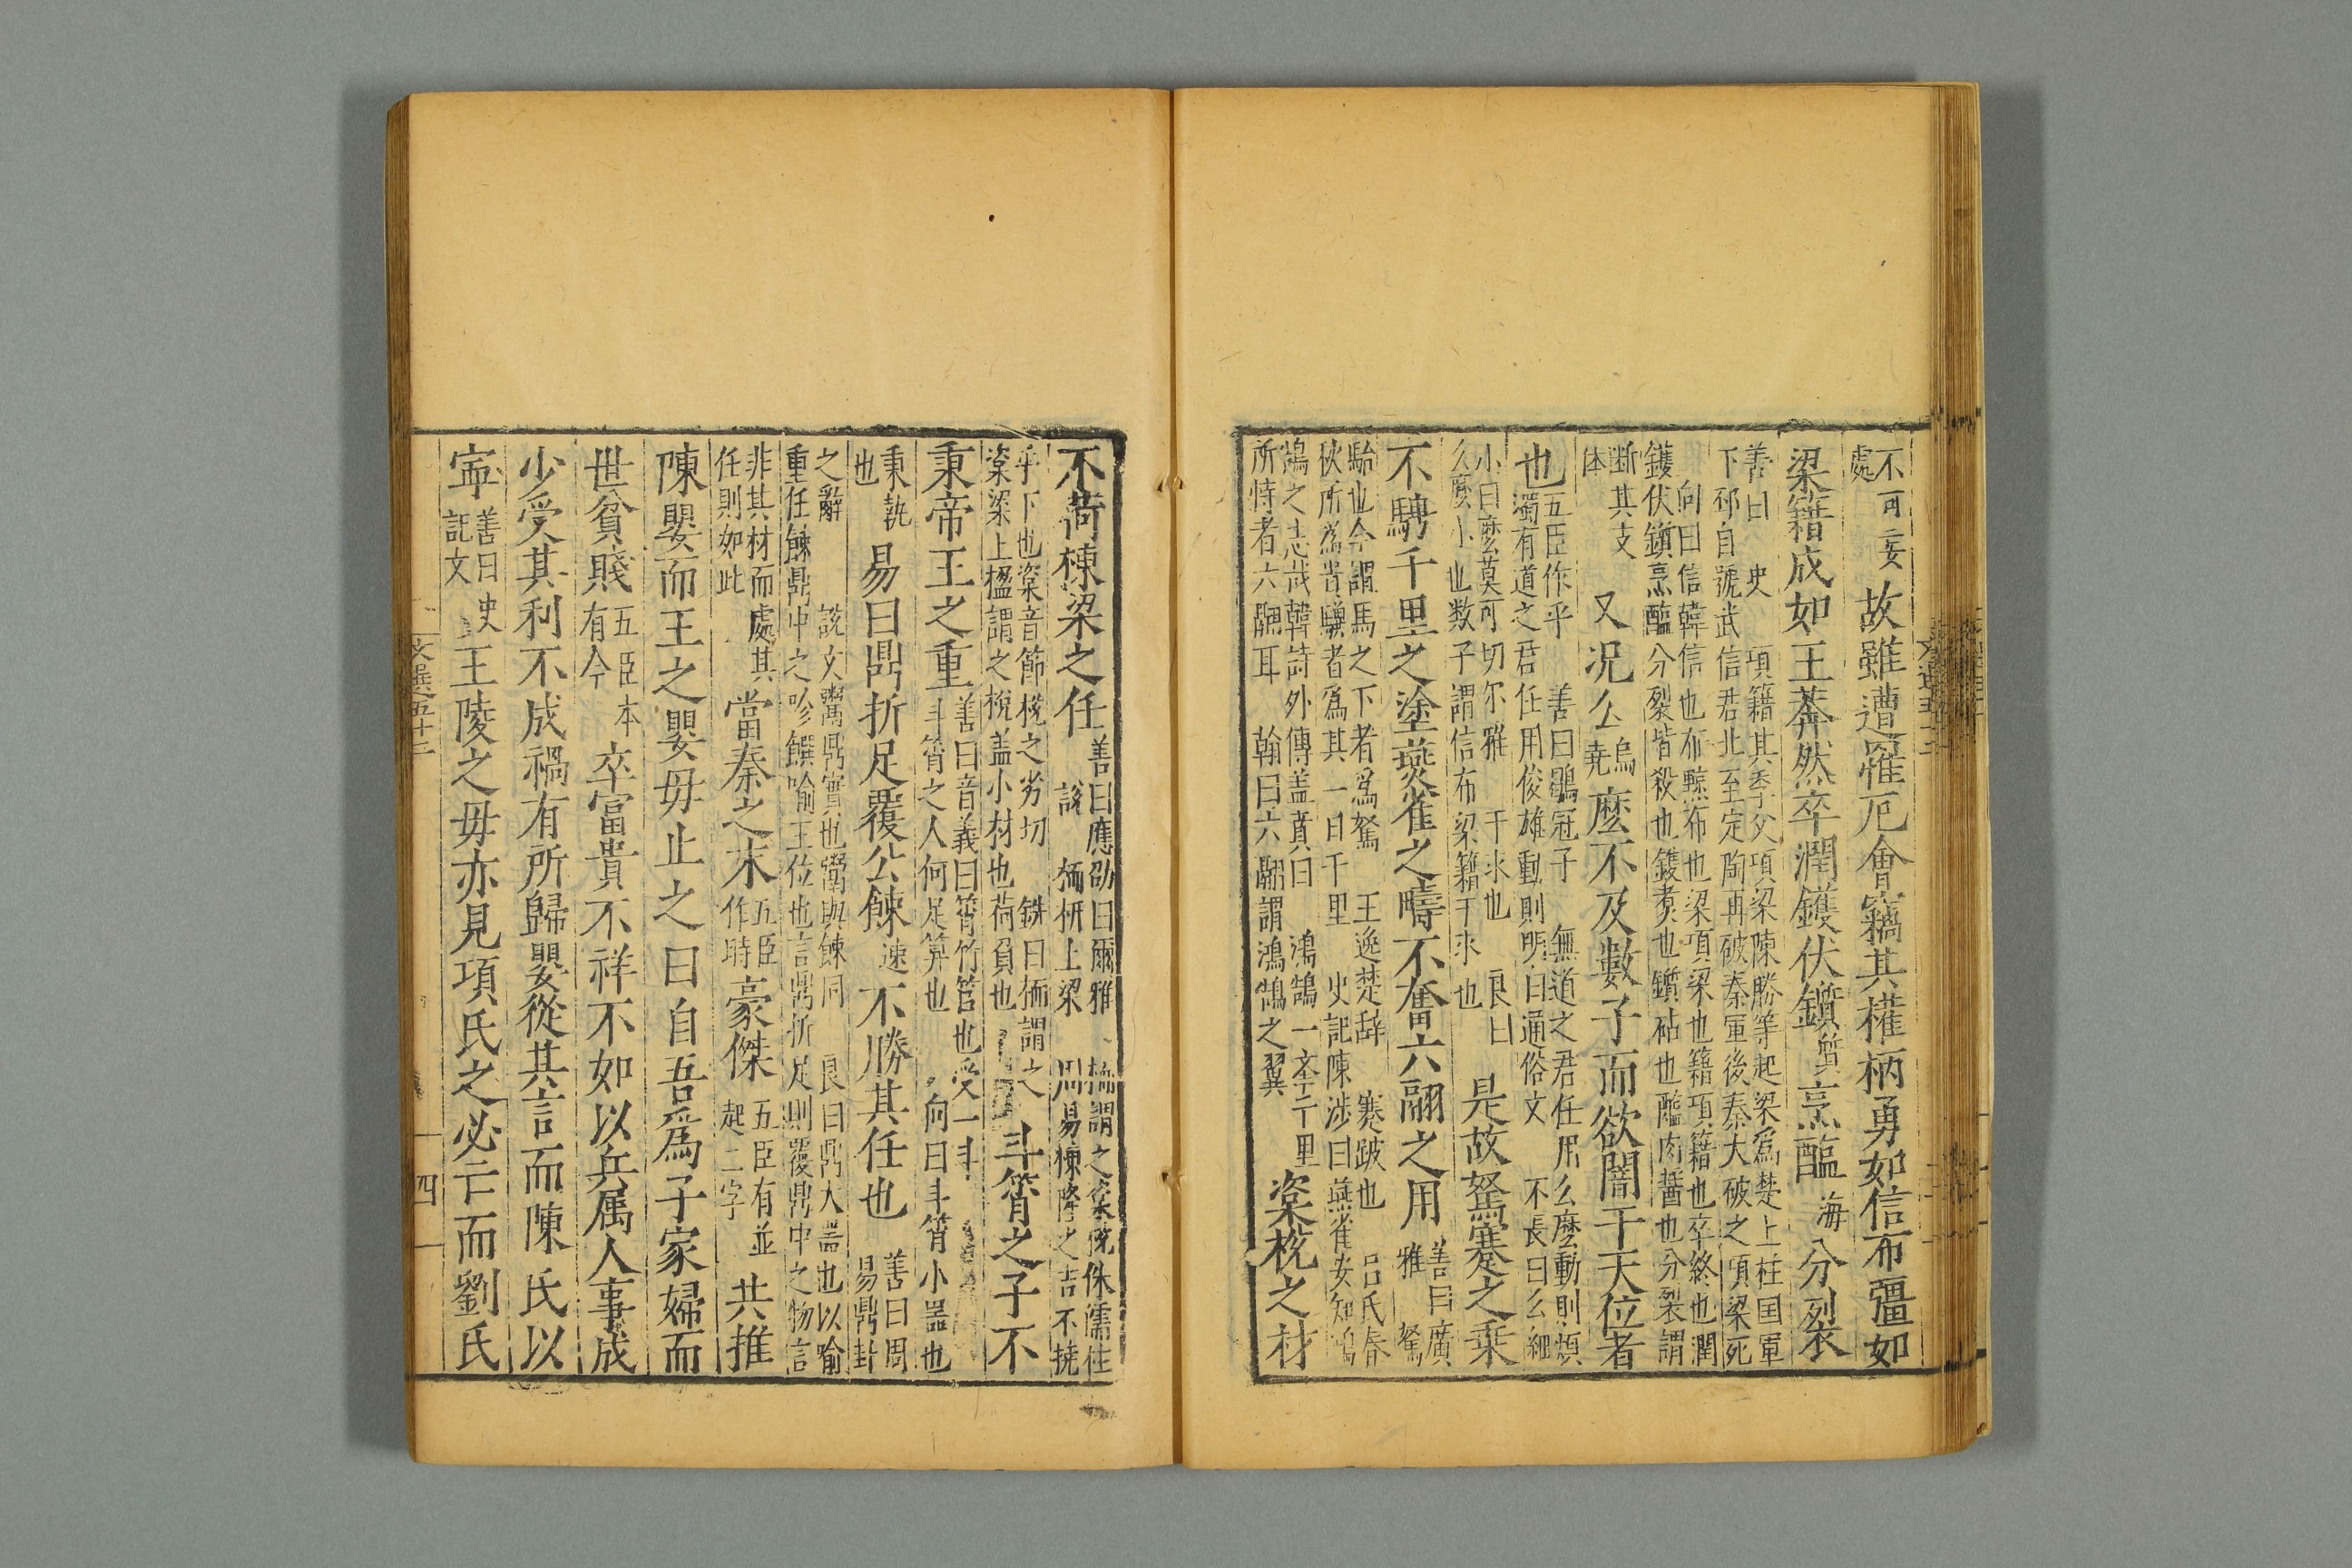 不可妄處故雖遭罹厄會竊其權柄勇如信布彊如
梁籍成如王莽然卒潤鑊伏鑕質烹醢海分裂
善曰史項籍其季父項梁陳勝等起梁爲楚上柱国軍
下邳自號武信君北至定陶再破秦軍後秦大破之項梁死
向曰信韓信也布黥布也梁項梁也籍項籍也卒終也潤
鑊伏鑕烹醢分裂皆殺也鑊煑也鑕砧也醢肉醬也分裂謂
斷其支体又况幺烏堯麼不及數子而欲闇干天位者
也五臣作乎善曰鶡冠子無道之君任用幺麼動則煩
濁有道之君任用俊雄動則明白通俗文不長曰幺細
小曰麽莫可切尔雅干求也良曰
幺麽小也数子謂信布梁籍干求也是故駑蹇之乗
不騁千里之塗燕雀之疇不奮六翮之用善曰廣雅駑
駘也今謂馬之下者爲駑王逸楚辞蹇跛也吕氏春
秋所爲貴驥者爲其一日千里史記陳涉曰燕雀安知鴻
鵠之志哉韓詩外傳盖胥曰鴻鵠一舉千里
所恃者六翮耳翰曰六翮謂鴻鵠之翼楶梲之材
不荷棟梁之任善曰應劭曰爾雅栭謂之楶梲侏儒柱
説栭枅上梁周易棟隆之吉不撓
乎下也楶音節梲之劣切銑曰栭謂之
楶梁上楹謂之梲盖小材也荷負也斗筲之子不
秉帝王之重善曰音義曰筲竹筥也受一斗
斗筲之人何足筭也向曰斗筲小噐也
秉執也易曰鼎折足覆公餗速不勝其任也善曰周易鼎卦
之辭説文鬻鼎實也鬻與餗同良曰鼎大噐也以喻
重任餗鼎中之珍饌喻王位也言鼎折足則覆鼎中之物言
非其材而處其任則如此當秦之末五臣作時豪傑五臣有並起二字共推
陳嬰而王之嬰毋止之曰自吾爲子家婦而
世貧賤五臣本有今卒富貴不祥不如以兵属人事成
少受其利不成禍有所歸嬰從其言而陳氏以
寧善曰史記文王陵之毋亦見項氏之必亡而劉氏
文選五十二
四